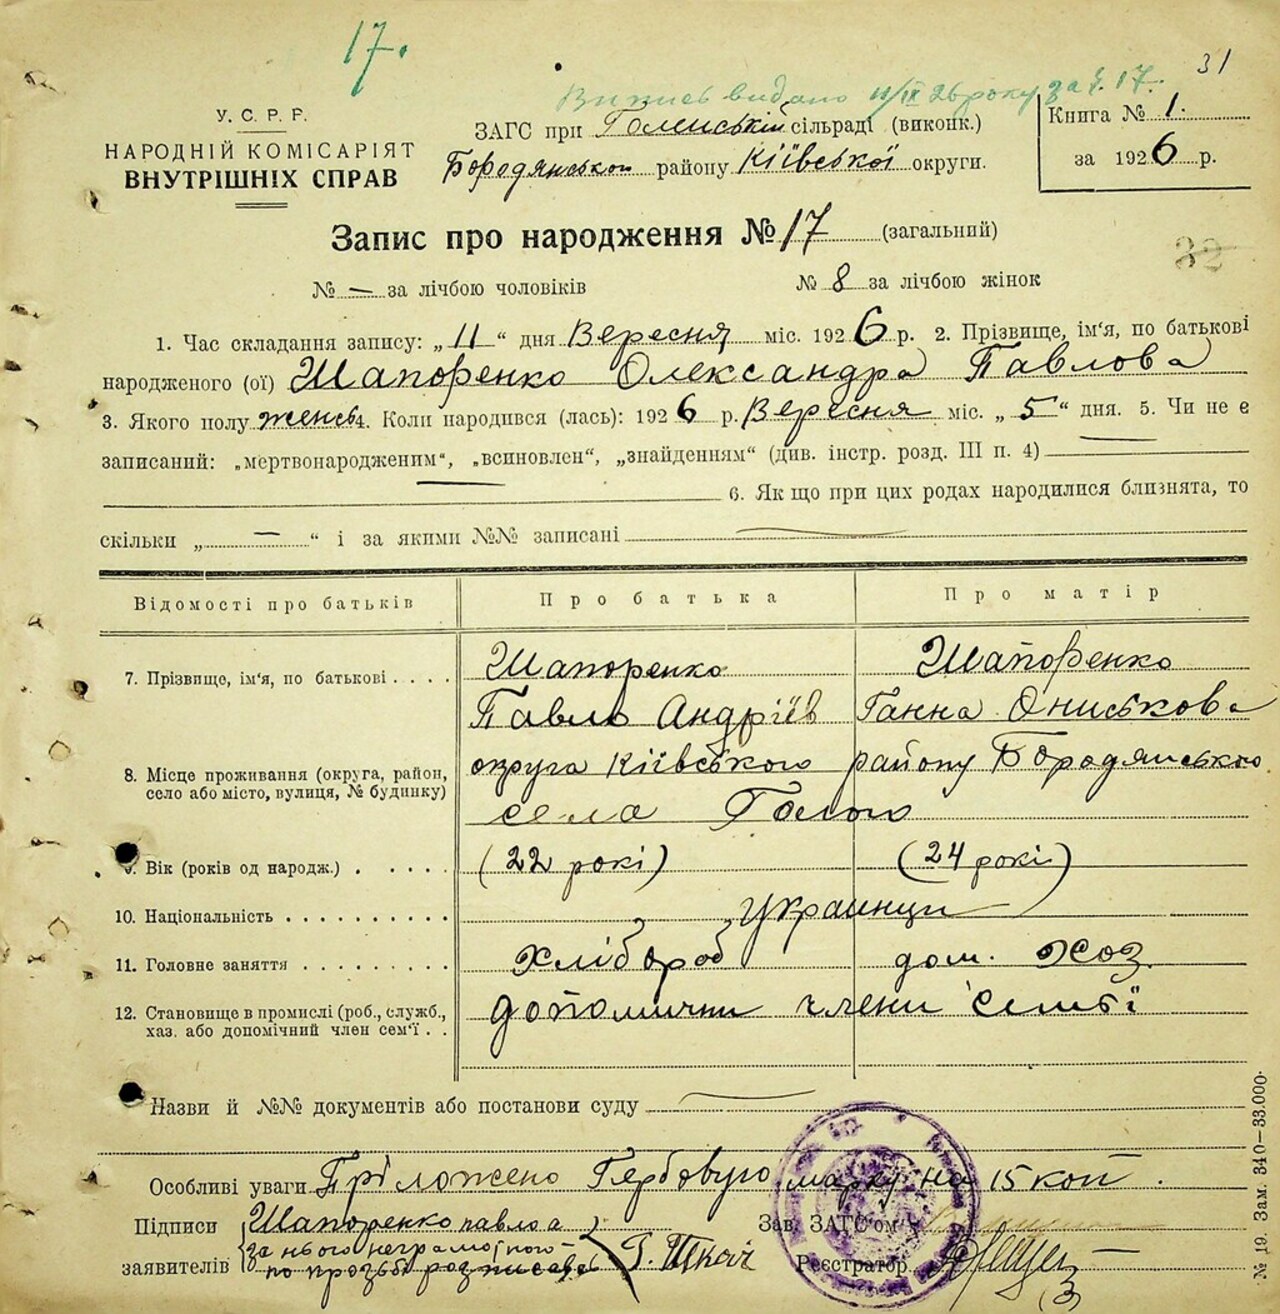 17.
31
Витись видано 11/IX 26 року за § 17.
У. С. Р. Р.
НАРОДНІЙ КОМІСАРІЯТ
ВНУТРІШНІХ СПРАВ
ЗАГС при Голенській сільраді (виконк.)
Бородянського району Київської округи.
Книга № 1.
за 1926 р.
Запис про народження № 17 (загальний)
32
№ — за лічбою чоловіків № 8 за лічбою жінок
1. Час складання запису: „11“ дня Вересня міс. 1926 р. 2. Прізвище, ім'я, по батькові
народженого (ої) Шапоренко Олександра Павлова
3. Якого полу женсь 4. Коли народився (лась): 1926 р. Вересня міс. „5“ дня. 5. Чи не є
записаний: „мертвонародженим“, „всиновлен“, „знайденням“ (див. інстр. розд. III п. 4) —
6. Як що при цих родах народилися близнята, то
скільки „—“ і за якими №№ записані —
Відомості про батьків Про батька Про матір
7. Прізвище, ім'я, по батькові . . . . Шапоренко Шапоренко
Павло Андріїв Ганна Ониськова
8. Місце проживання (округа, район, село або місто, вулиця, № будинку) округа Київського району Бородянського
села Голого
9. Вік (років од народж.) . . . . . (22 рокі) (24 рокі)
10. Національність . . . . . . . . . . Украинци
11. Головне заняття . . . . . . . . . Хлібороб дом. хоз.
12. Становище в промислі (роб., служб., хаз. або допомічний член сем'ї . . допомични члени семьї
Назви й №№ документів або постанови суду —
Особливі уваги Пріложено Гербовую марку на 15 коп.
Підписи Шапоренко павло а
заявителів за нього неграмотного
по прозьбі розписавсь Г. Ткач
Зав. ЗАГС'ом
Реєстратор
№ 19. Зам. 340—33.000.